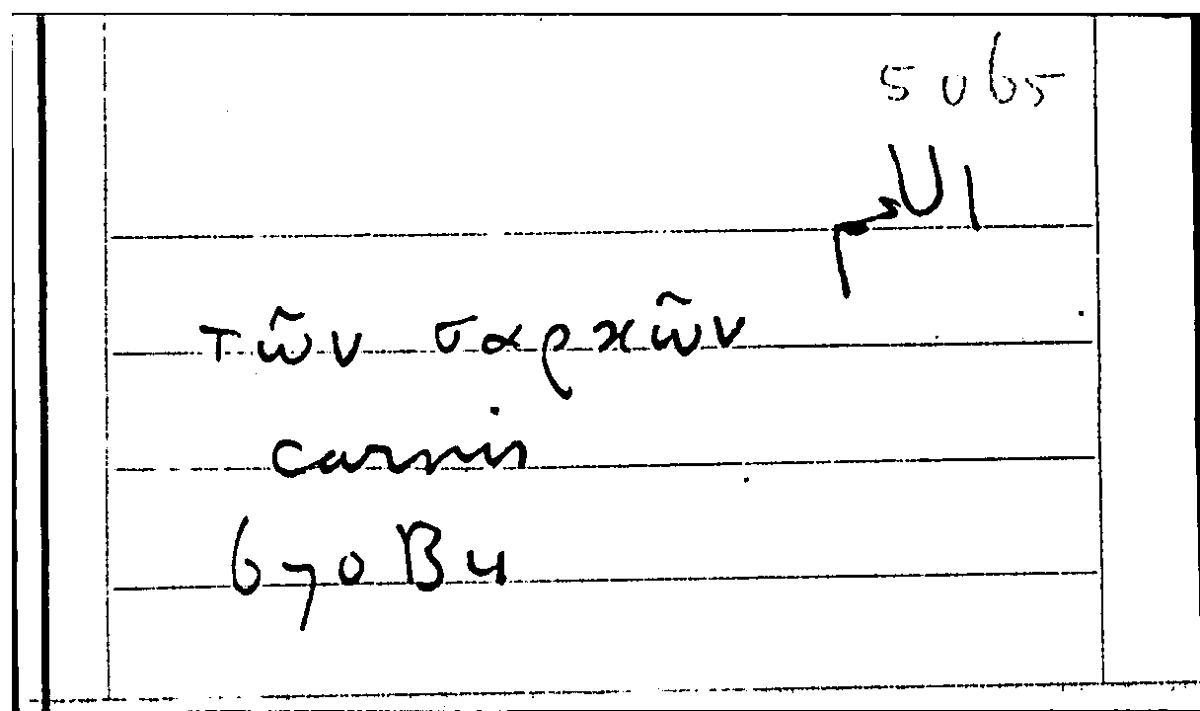 5065
U1
τῶν σαρκῶν
carnis
670 B4